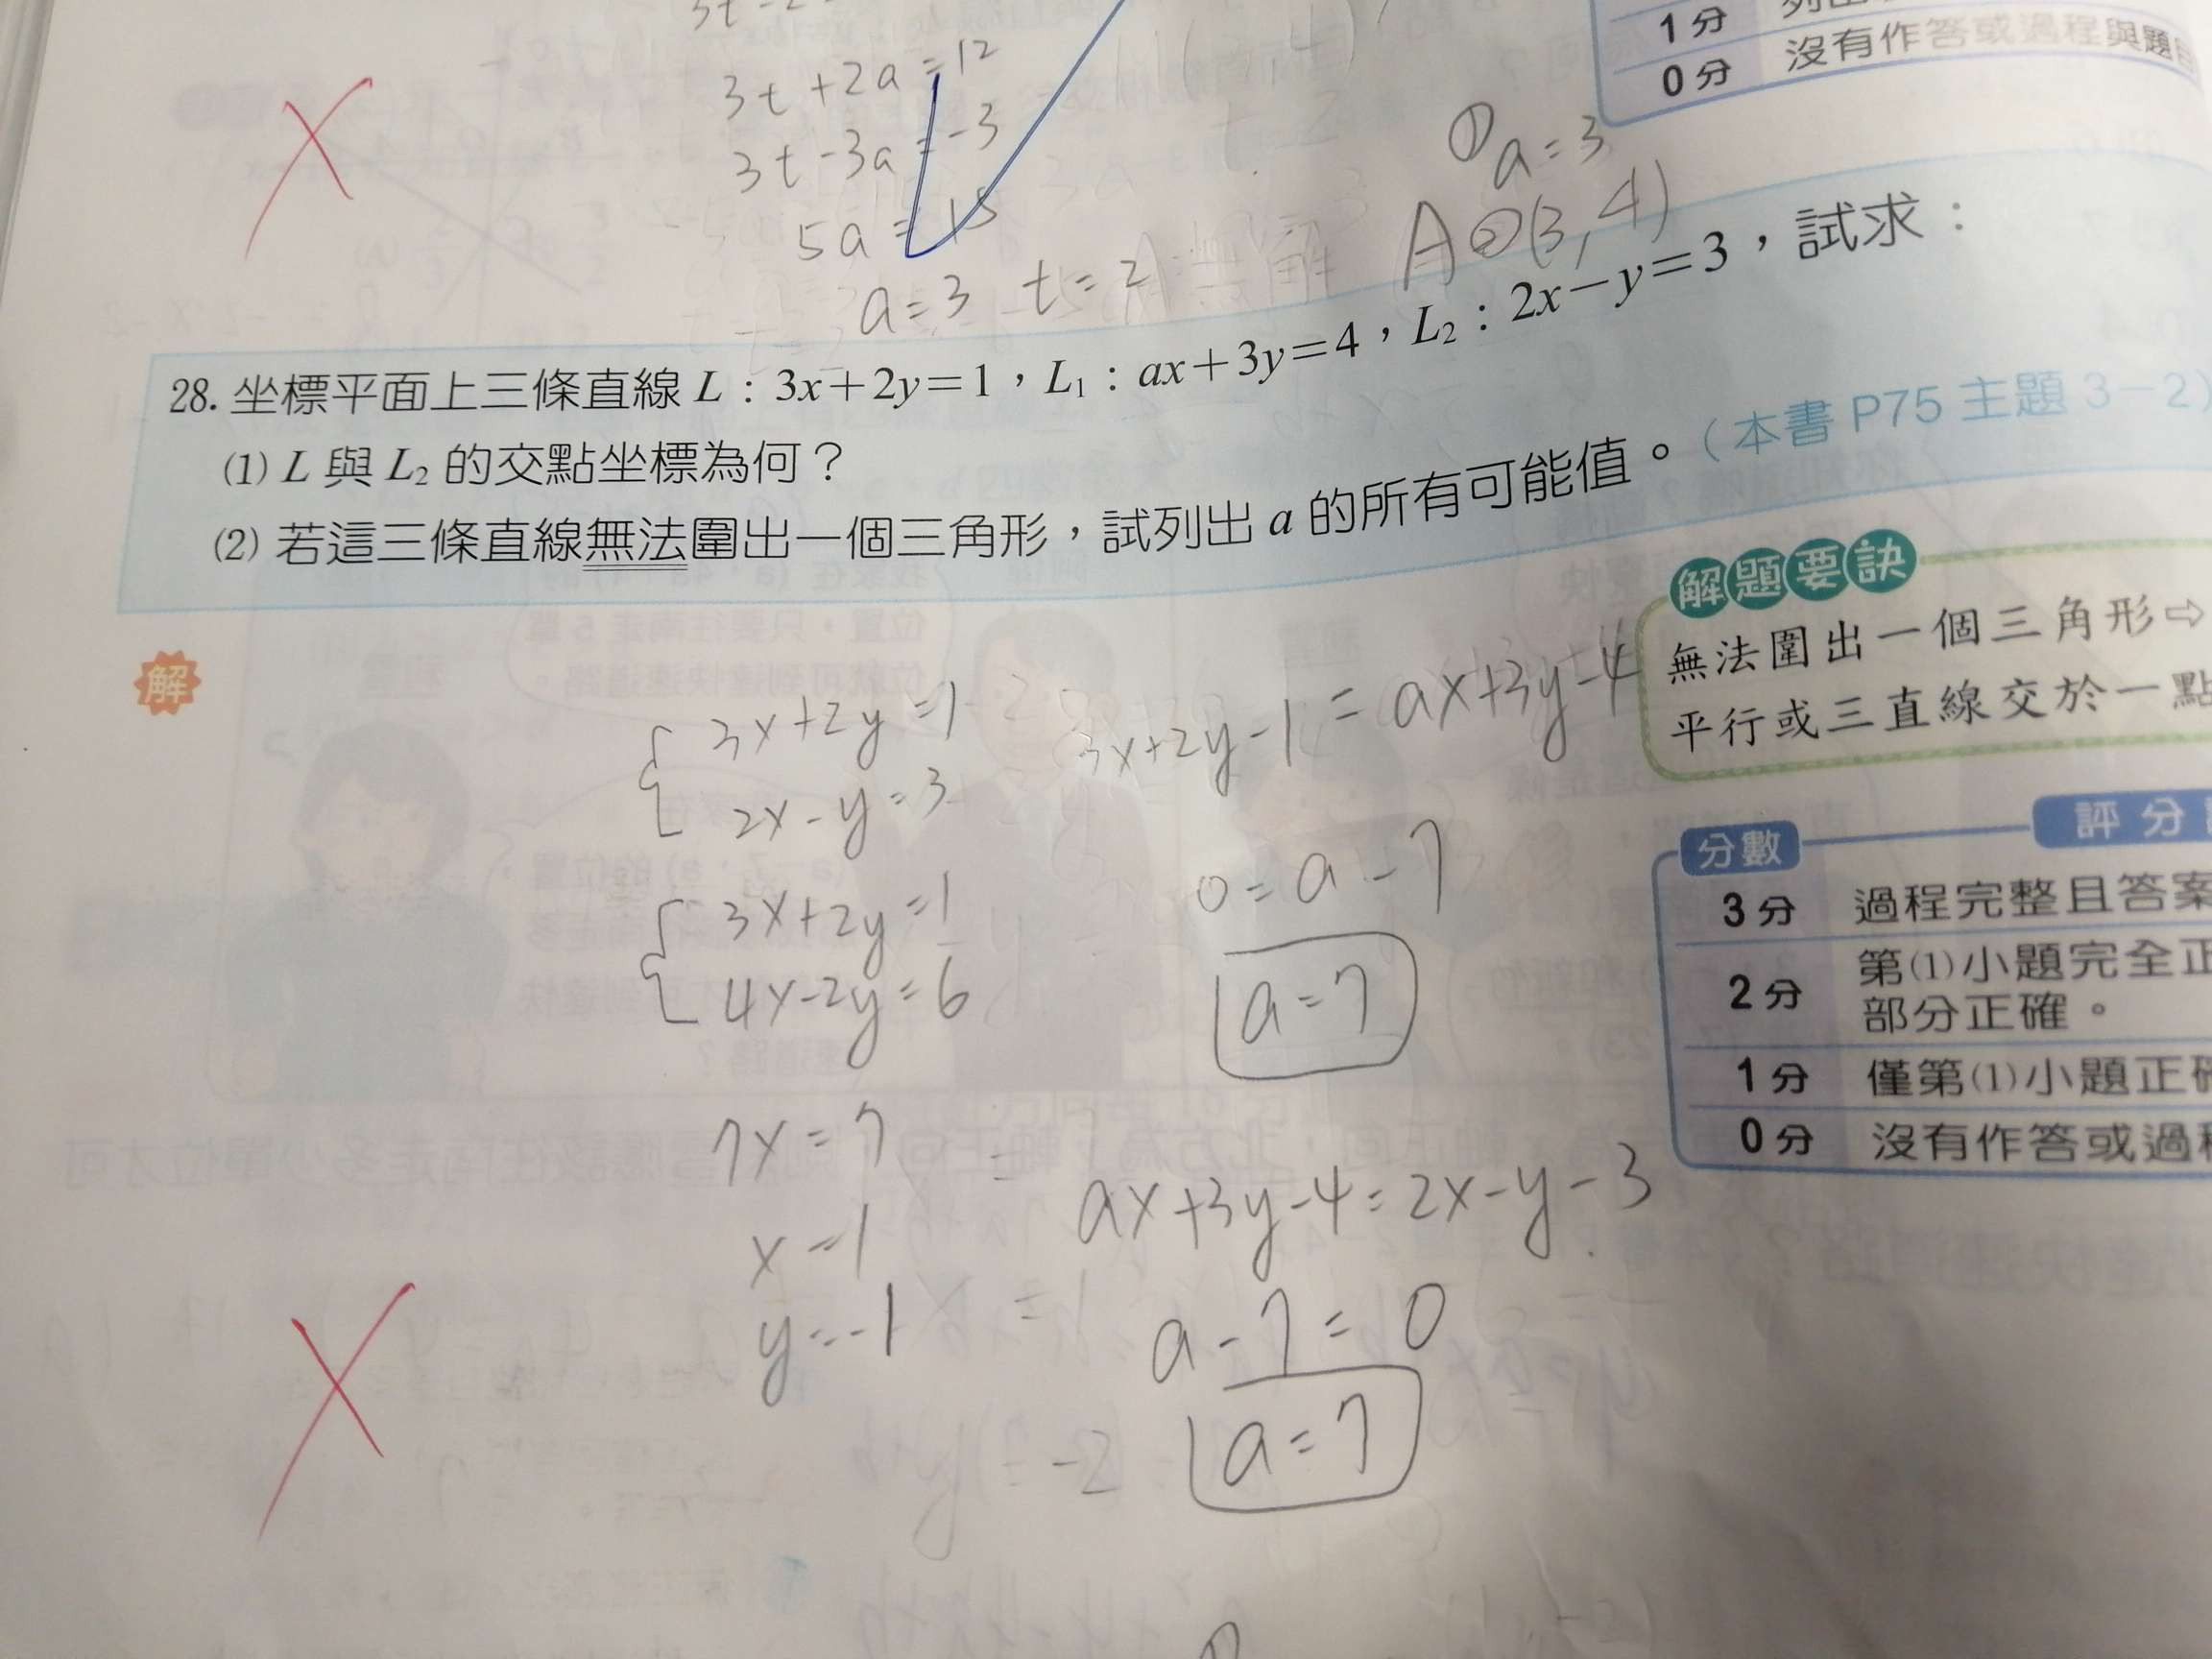 1分
0分 沒有作答或過程與題目
3t+2a=12
3t-3a=-3
5a=15
a=3 t=2
① a=3
A ②(3,4)
28. 坐標平面上三條直線 L：3x+2y=1，L₁：ax+3y=4，L₂：2x-y=3，試求：
(1) L 與 L₂ 的交點坐標為何？
(2) 若這三條直線無法圍出一個三角形，試列出 a 的所有可能值。(本書 P75 主題 3-2)
解題要訣
無法圍出一個三角形⇨
平行或三直線交於一點
解
3x+2y=1
2x-y=3
3x+2y=1
4x-2y=6
7x=7
x=1
y=-1
3x+2y-1=ax+3y-4
0=a-7
a=7
ax+3y-4=2x-y-3
a-7=0
a=7
分數 評分
3分 過程完整且答案
2分 第(1)小題完全正
部分正確。
1分 僅第(1)小題正確
0分 沒有作答或過程